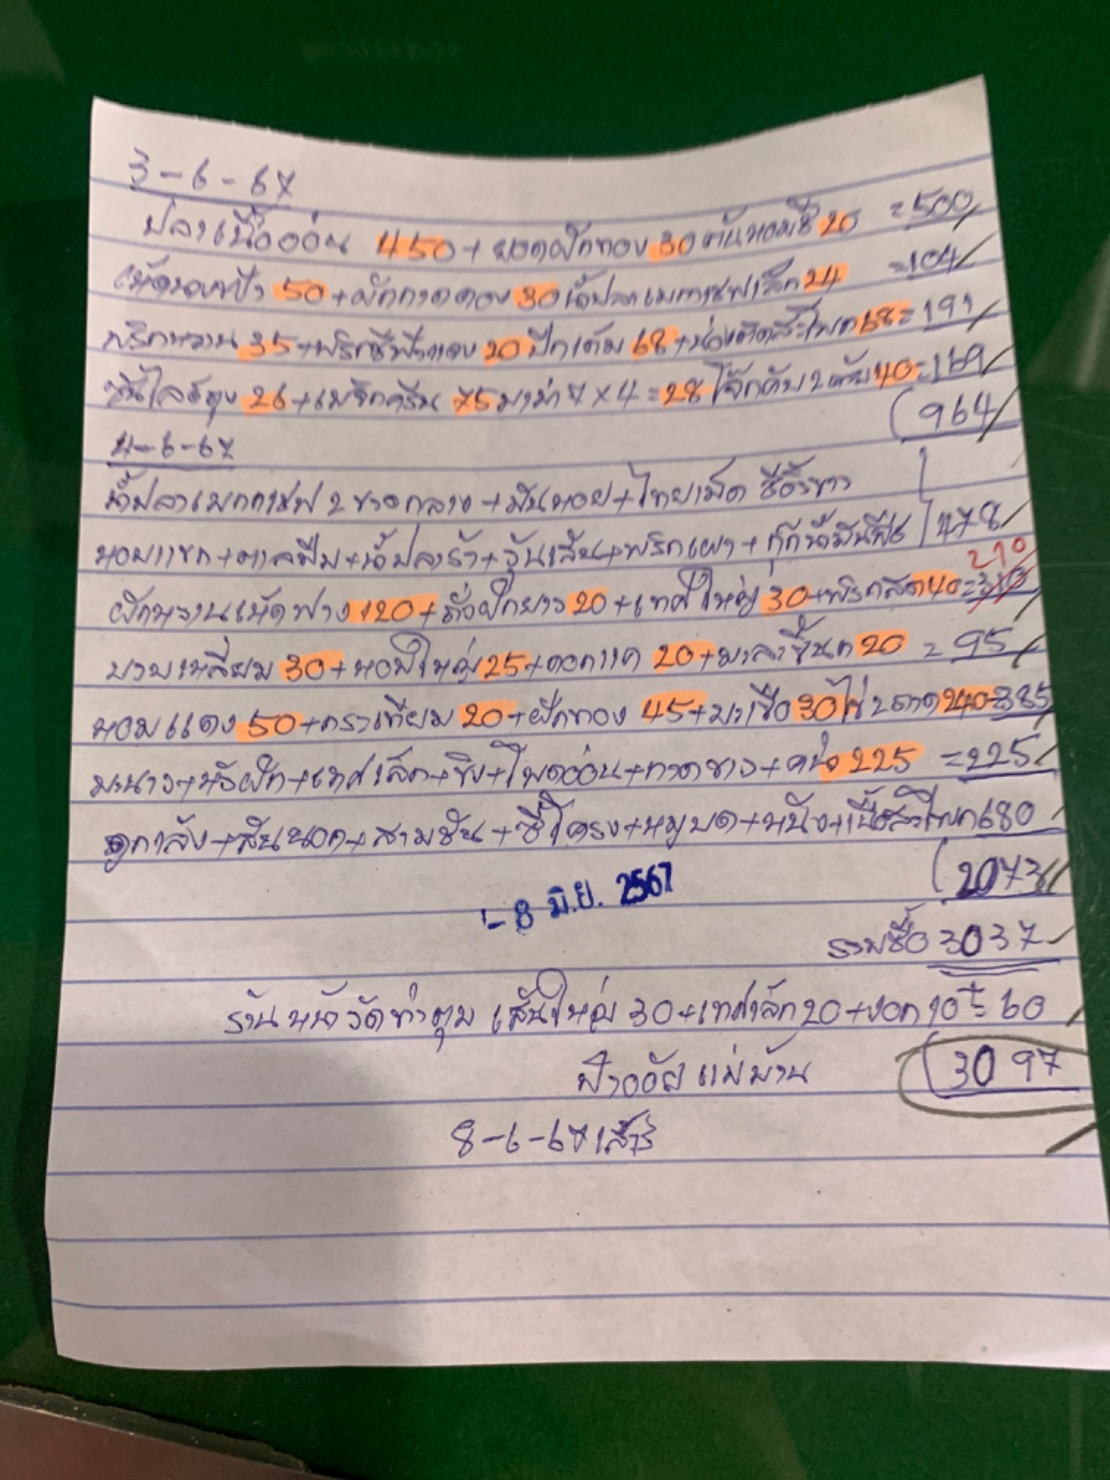 3-6-67
ปลาเนื้ออ่อน 450+ยอดฝักทอง 30 ต้นหอมชี 20 =500
50+ผักกาดดอง 30 น้ำปลาเมกาเชฟเล็ก 24 =104
พริกหวาน 35+พริกชี้ฟ้าแดง 20 ปีกเต็ม 68+น่องติดสะโพก 68=191
ซันไลต์ถุง 26+เมจิกครีม 75 มาม่า 7×4=28 โจ๊กคัพ 2 ถ้วย 40=169
(964
4-6-67
น้ำปลาเมกกาเชฟ 2 ขวดกลาง+มันหอย+ไทยเม็ด ซีอิ๊วขาว
หอมแขก+ตาลปึ๊บ+น้ำปลาร้า+วุ้นเส้น+พริกเผา+กุ๊กน้ำมันพืช 478
210
ผักหวานเห็ดฟาง 120+ถั่วฝักยาว 20+เทศใหญ่ 30+พริกสด 40=310
บวบเหลี่ยม 30+หอมใหญ่ 25+ดอกแค 20+มาลาขี้นก 20 = 95
หอมแดง 50+กระเทียม 20+ฝักทอง 45+มะเขือ 30 ไข่ 2 ถาด 240=385
มะนาว+หัวผัก+เทศเล็ก+ขิง+โพดอ่อน+กวาดขาว+คะน้า 225 =225
+สันนอก+สามชั้น+ซี่โครง+หมูบด+หนัง+เนื้อสะโพก 680
(2073
รวมซื้อ 3037
ร้านหน้าวัดท่าตูม เส้นใหญ่ 30+เทศเล็ก 20+งอก 10 = 60
ป้าออัย แม่บ้าน (3097
8-6-67 เสาร์
- 8 มิ.ย. 2567